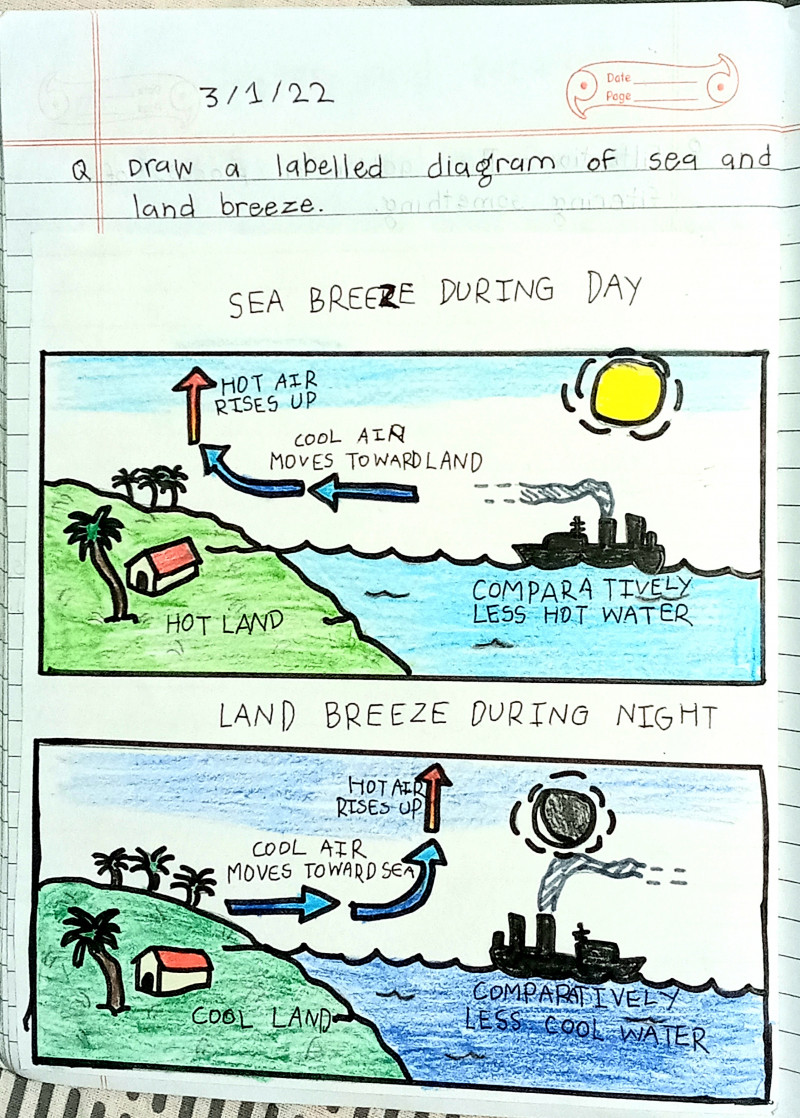 3/1/22
Date
Page
Q Draw a labelled diagram of sea and
land breeze.
SEA BREEZE DURING DAY
HOT AIR
RISES UP
COOL AIR
MOVES TOWARD LAND
COMPARATIVELY
LESS HOT WATER
HOT LAND
LAND BREEZE DURING NIGHT
HOT AIR
RISES UP
COOL AIR
MOVES TOWARD SEA
COMPARATIVELY
LESS COOL WATER
COOL LAND